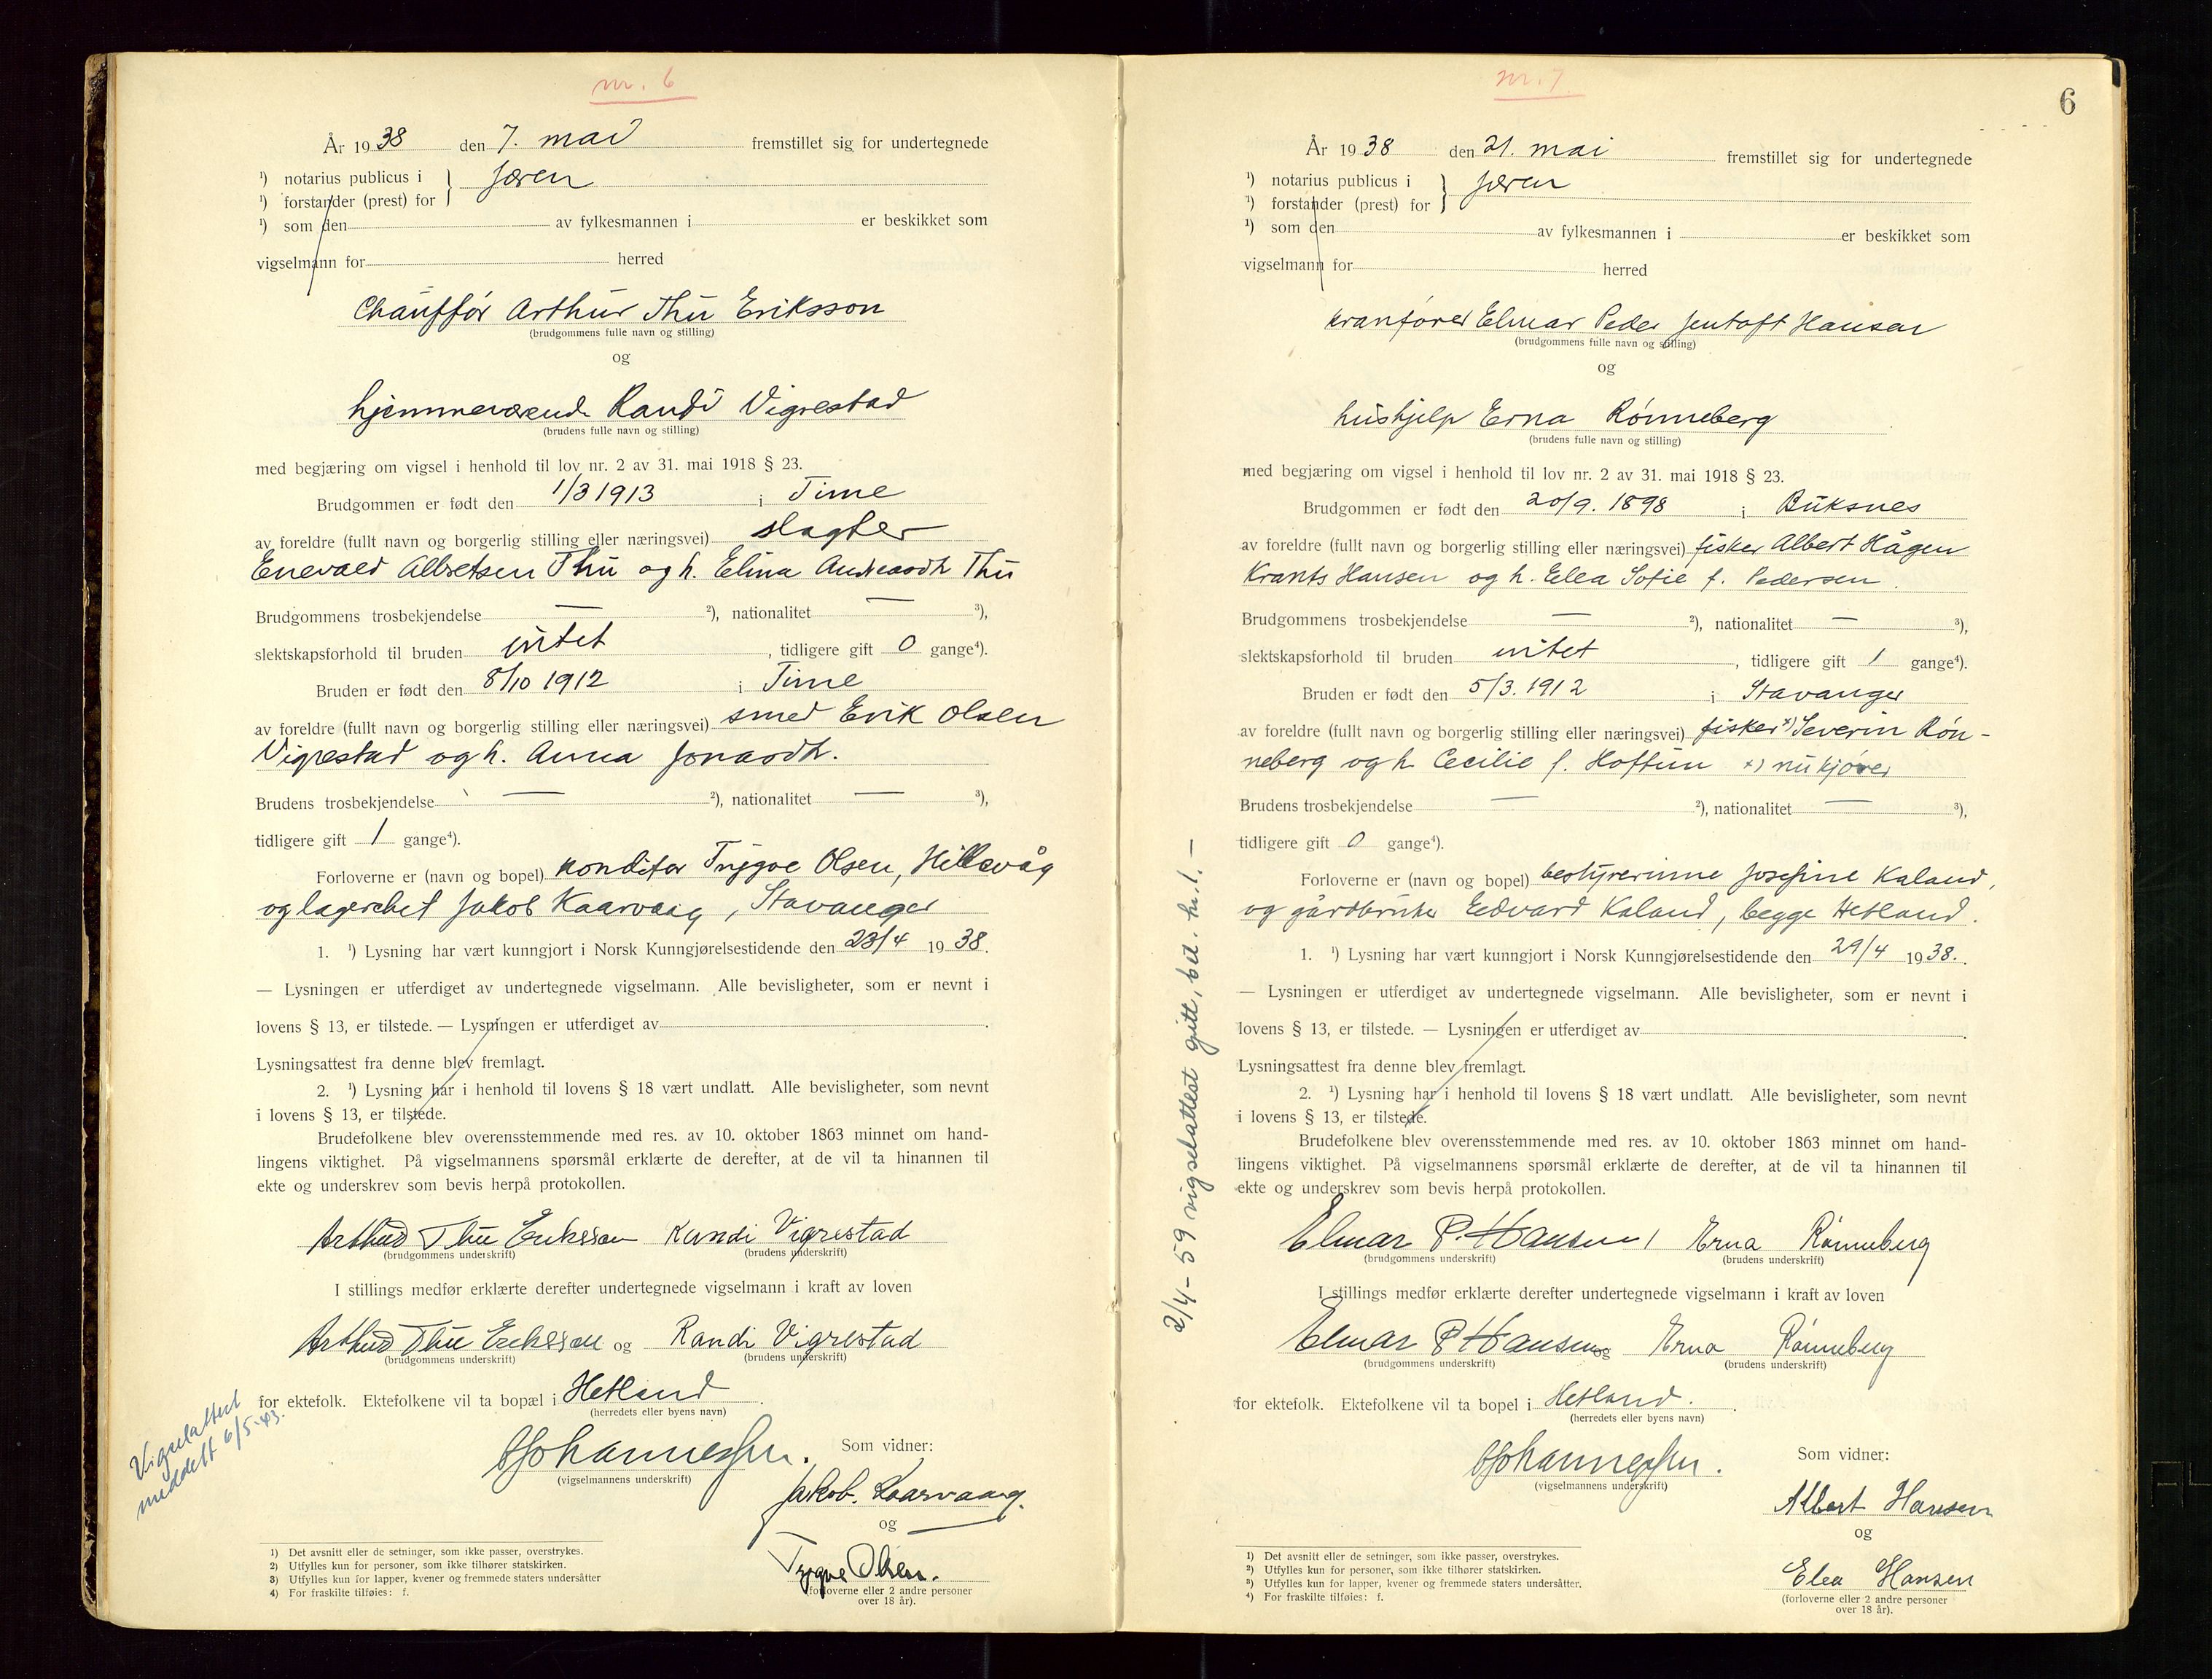 nr. 6
År 1938 den 7. mai fremstillet sig for undertegnede
¹) notarius publicus i } Jæren
¹) forstander (prest) for
¹) som den av fylkesmannen i er beskikket som
vigselmann for herred
Chauffør Arthur Thu Eriksson
(brudgommens fulle navn og stilling)
og
hjemmeværende Randi Vigrestad
(brudens fulle navn og stilling)
med begjæring om vigsel i henhold til lov nr. 2 av 31. mai 1918 § 23.
Brudgommen er født den 1/3 1913 i Time
av foreldre (fullt navn og borgerlig stilling eller næringsvei) slagter
Enevald Albretsen Thu og h. Elina Andreasdtr Thu
Brudgommens trosbekjendelse — ²), nationalitet — ³),
slektskapsforhold til bruden intet, tidligere gift 0 gange⁴).
Bruden er født den 8/10 1912 i Time
av foreldre (fullt navn og borgerlig stilling eller næringsvei) smed Erik Olsen
Vigrestad og h. Anna Jonasdtr.
Brudens trosbekjendelse — ²), nationalitet — ³),
tidligere gift 1 gange⁴).
Forloverne er (navn og bopel) konditor Trygve Olsen, Hillevåg
og lagerchef Jakob Kaarvaag, Stavanger
1. ¹) Lysning har vært kunngjort i Norsk Kunngjørelsestidende den 23/4 1938.
— Lysningen er utferdiget av undertegnede vigselmann. Alle bevisligheter, som er nevnt i
lovens § 13, er tilstede. — Lysningen er utferdiget av
Lysningsattest fra denne blev fremlagt.
2. ¹) Lysning har i henhold til lovens § 18 vært undlatt. Alle bevisligheter, som nevnt
i lovens § 13, er tilstede.
Brudefolkene blev overensstemmende med res. av 10. oktober 1863 minnet om hand-
lingens viktighet. På vigselmannens spørsmål erklærte de derefter, at de vil ta hinannen til
ekte og underskrev som bevis herpå protokollen.
Arthur Thu Eriksson Randi Vigrestad
(brudgommens underskrift) (brudens underskrift)
I stillings medfør erklærte derefter undertegnede vigselmann i kraft av loven
Arthur Thu Eriksson og Randi Vigrestad
(brudgommens underskrift) (brudens underskrift)
for ektefolk. Ektefolkene vil ta bopæl i Hetland.
(herredets eller byens navn)
Vigselattest
meddelt 6/5-43.
Johannessen.
(vigselmannens underskrift)
Som vidner:
Jakob. Kaarvaag.
og
Trygve Olsen.
(forloverne eller 2 andre personer
over 18 år).
1) Det avsnitt eller de setninger, som ikke passer, overstrykes.
2) Utfylles kun for personer, som ikke tilhører statskirken.
3) Utfylles kun for lapper, kvener og fremmede staters undersåtter
4) For fraskilte tilføies: f.
nr. 7.
6
År 1938 den 21. mai fremstillet sig for undertegnede
¹) notarius publicus i } Jæren
¹) forstander (prest) for
¹) som den av fylkesmannen i er beskikket som
vigselmann for herred
kranfører Elmar Peder Jentoft Hansen
(brudgommens fulle navn og stilling)
og
hushjelp Erna Rønneberg
(brudens fulle navn og stilling)
med begjæring om vigsel i henhold til lov nr. 2 av 31. mai 1918 § 23.
Brudgommen er født den 20/9. 1898 i Buksnes
av foreldre (fullt navn og borgerlig stilling eller næringsvei) fisker Albert Hågen
Krants Hansen og h. Ella Sofie f. Pedersen.
Brudgommens trosbekjendelse — ²), nationalitet — ³),
slektskapsforhold til bruden intet, tidligere gift 1 gange⁴).
Bruden er født den 5/3. 1912 i Stavanger
av foreldre (fullt navn og borgerlig stilling eller næringsvei) fisker x) Severin Røn-
neberg og h. Cecilie f. Hoftun x) nu kjører
Brudens trosbekjendelse — ²), nationalitet — ³),
tidligere gift 0 gange⁴).
Forloverne er (navn og bopel) bestyrerinne Josefine Kaland,
og gårdbruker Edvard Kaland, begge Hetland.
1. ¹) Lysning har vært kunngjort i Norsk Kunngjørelsestidende den 29/4 1938.
— Lysningen er utferdiget av undertegnede vigselmann. Alle bevisligheter, som er nevnt i
lovens § 13, er tilstede. — Lysningen er utferdiget av
Lysningsattest fra denne blev fremlagt.
2. ¹) Lysning har i henhold til lovens § 18 vært undlatt. Alle bevisligheter, som nevnt
i lovens § 13, er tilstede.
Brudefolkene blev overensstemmende med res. av 10. oktober 1863 minnet om hand-
lingens viktighet. På vigselmannens spørsmål erklærte de derefter, at de vil ta hinannen til
ekte og underskrev som bevis herpå protokollen.
Elmar P. Hansen Erna Rønneberg
(brudgommens underskrift) (brudens underskrift)
I stillings medfør erklærte derefter undertegnede vigselmann i kraft av loven
Elmar P Hansen og Erna Rønneberg
(brudgommens underskrift) (brudens underskrift)
for ektefolk. Ektefolkene vil ta bopel i Hetland.
(herredets eller byens navn)
Johannessen.
(vigselmannens underskrift)
Som vidner:
Albert Hansen
og
Ella Hansen
(forloverne eller 2 andre personer
over 18 år).
1) Det avsnitt eller de setninger, som ikke passer, overstrykes.
2) Utfylles kun for personer, som ikke tilhører statskirken.
3) Utfylles kun for lapper, kvener og fremmede staters undersåtter.
4) For fraskilte tilføies: f.
2/4-59 vigselattest gitt, bet. kr. 1.—